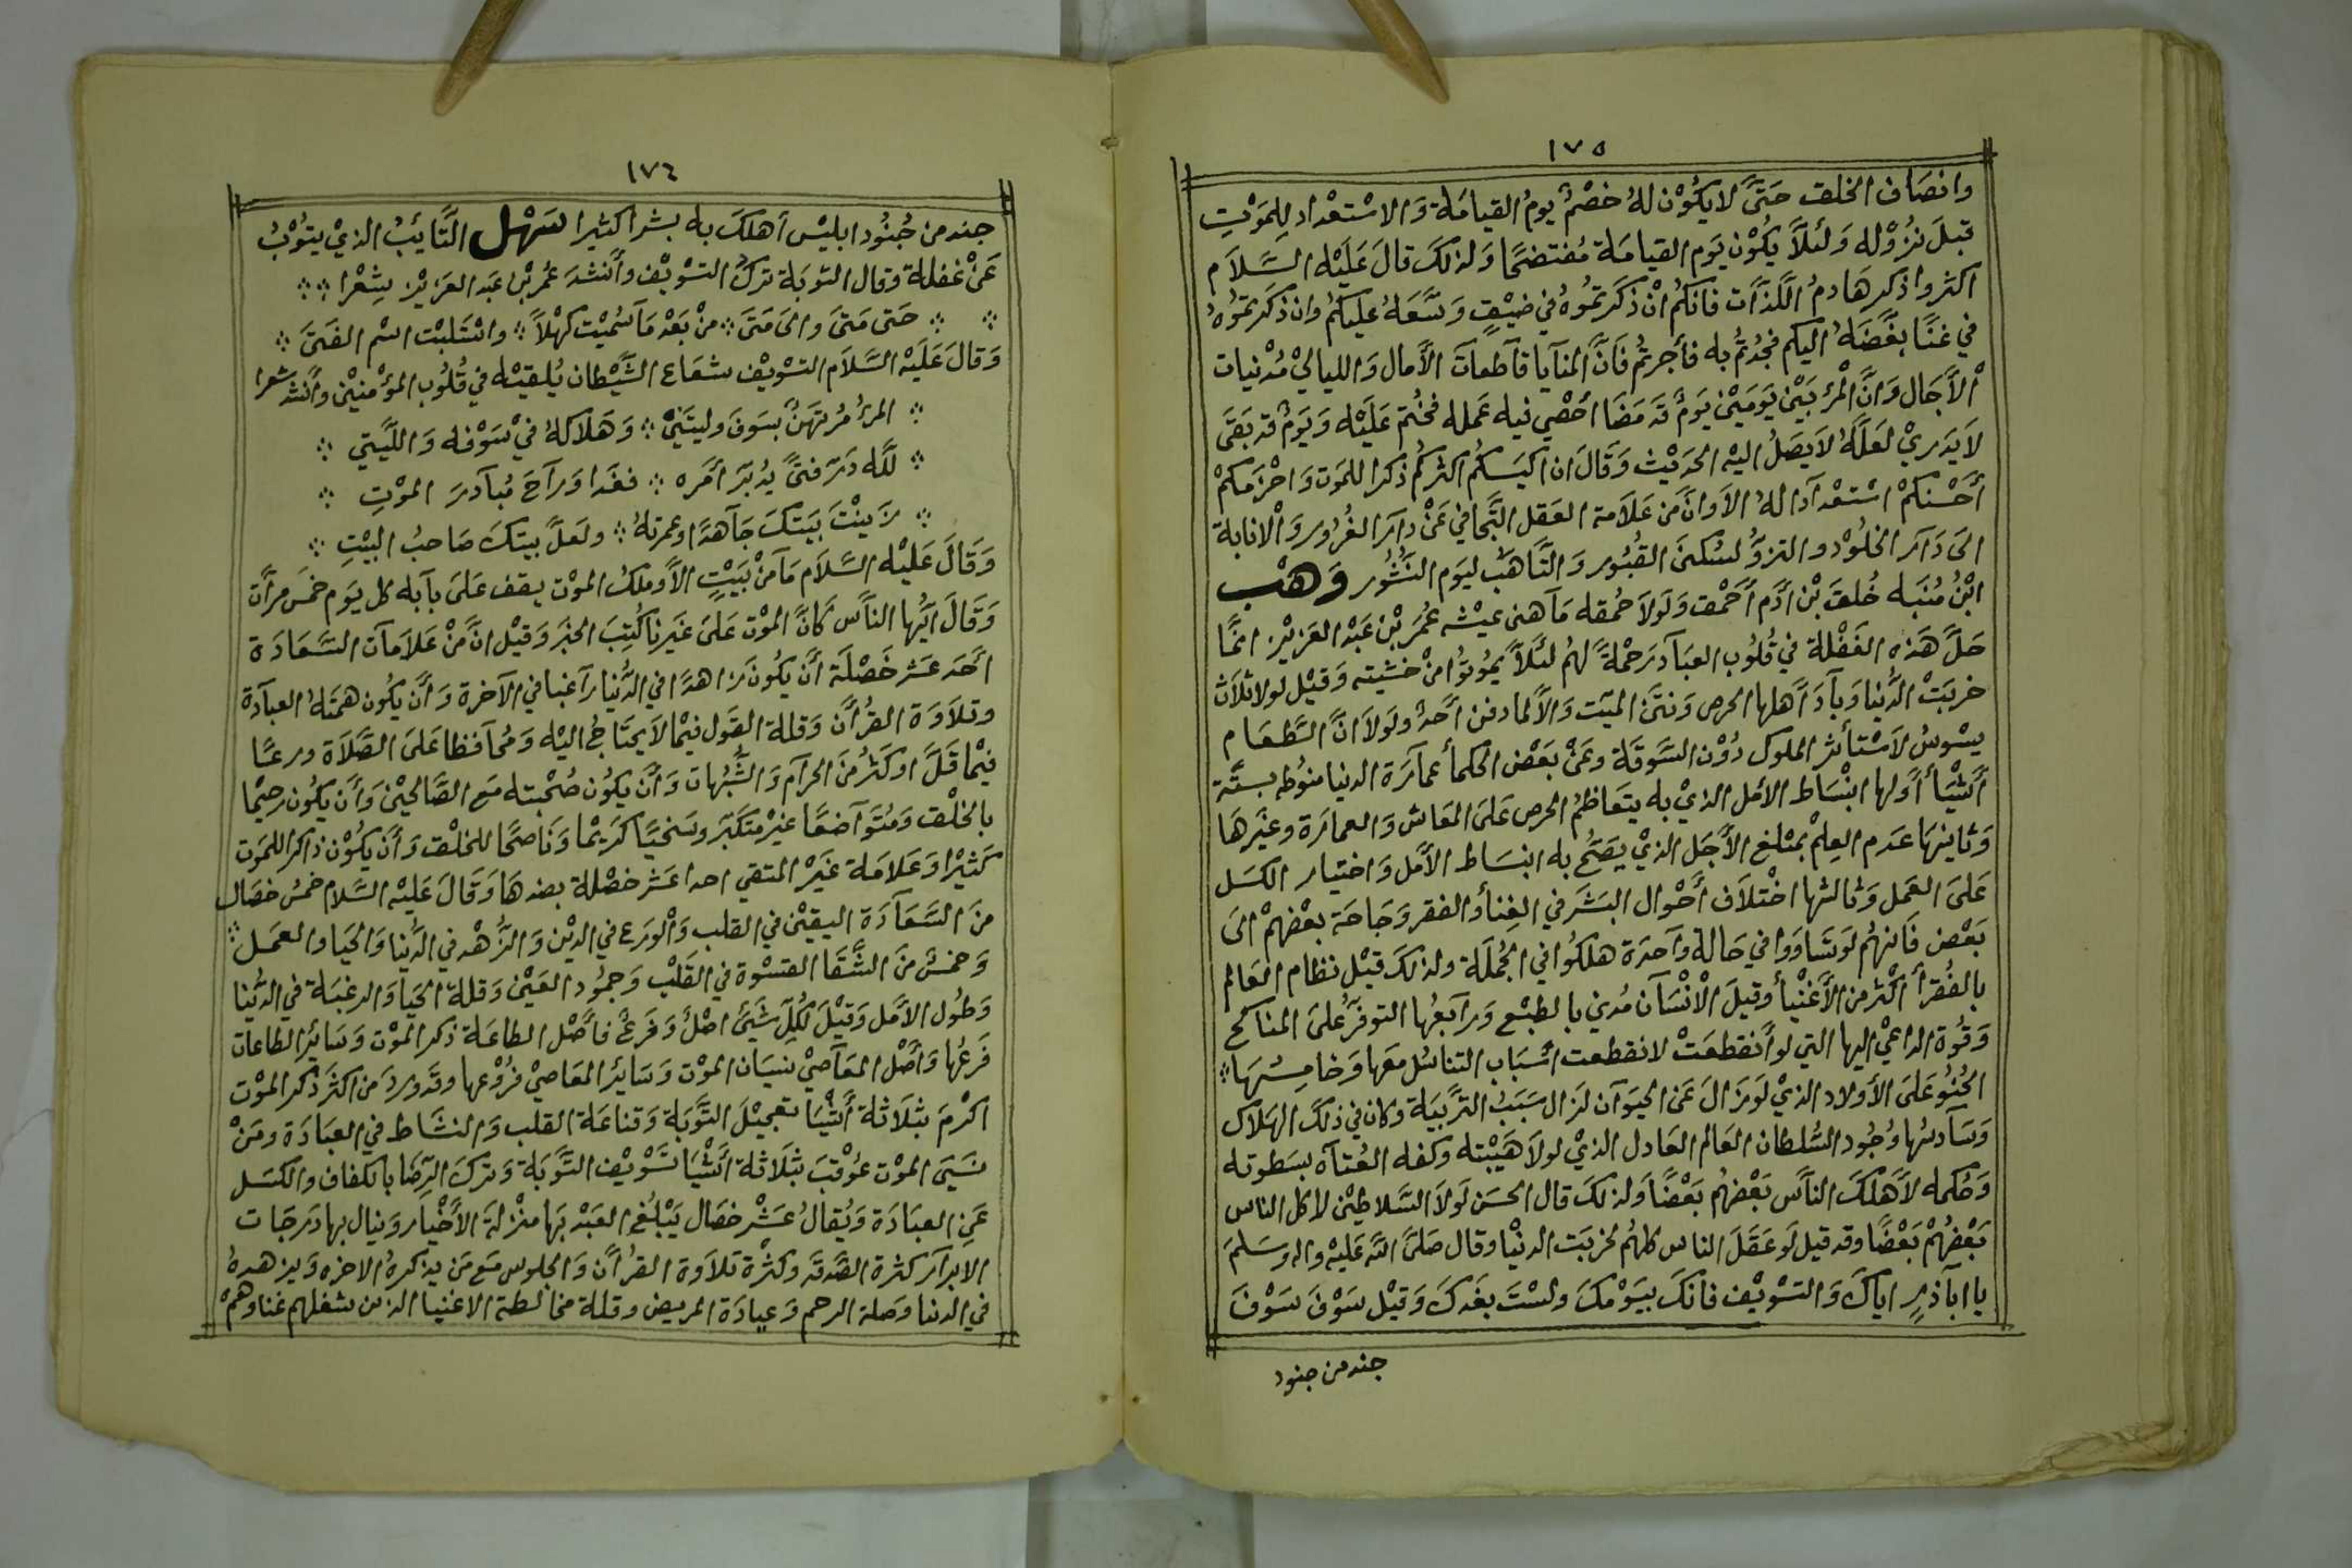 ١٧٥
وانصَاف الخلق حَتىَّ لايكُوْن لهُ خصْمٌ يومُ القيامَة وَالاسْتعْداد لِلمَوْتِ
قبلَ نزُوْله وَلئلَّا يكُوْن يَوم القيامَة مُفتضحًا وَلذلكَ قالَ عَليْه السَّلاَم
اكثروا ذكر هَادمُ اللَّذآت فانكمُ انْ ذكرَتموُهُ في ضيْقٍ وَسَّعَهُ عليكمُ وان ذكرَتموُهُ
في غنًا بغَّضَهُ اليكم فجُدْتمُ به فأجرتمُ فَانَّ المنَآيا قآطعآت الأمال وَالليالي مُدْنيات
الأَجَال وَانَّ الْمرَءَ بَيْنَ يَوَميَنْ يَومٌ قَد مَضَا أحْصِي فيه عَمله فخُتمَ عَلَيْه وَيَومٌ قد بَقَى
لاَيدَريْ لعَلَهُ لاَيصَلُ اليْه الحدَيْث وَقَالَ ان اكيَسَكمُ اكثركمُ ذكرا للمَوت وَاحْزمَكمْ
أحْسْنكمْ اسْتعْدآدًا لهُ الاَوانَّ مَن عَلاَمة العَقل التَّجافي عَنْ دآر الغُرُور وَالْانابة
الىَ دَآر الخلُوْد والتزوُّد لسُكنىَ القبُوُر وَالتَّاهبُّ ليَوم النشُوُر وَهْب
ابْنُ مُنَبه خُلقَ بْن ادَم أحْمق وَلولاَ حُمقه مَآهنى عيْشه عُمَر بْن عَبْد العَزيْز انمَّا
جَلَّ هَذه الغَفْلة في قُلوُب العبَآد رَحمْةً لهمُ لئلاَّ يمُوتوُا منْ خشيته وَقيْل لولا ثلاَث
خربَتْ الدُّنيا وَبآدَ أهلها الحرص وَنتنَ الميّت وَالاَّ لما دفن أحَدٌ ولَولاَ انَّ الطَّعَام
يسْوسُ لاَسْتأثر الملوك دُوْن السَّوقَة وعَنْ بَعْض الحكمأ عمآرَة الدنيا منوُطه بستَّة
أشْيَأ أوَلها انبْسَاط الأمَل الذيْ به يتَعاظمُ الحرص عَلىَ المَعاش وَالعمارَة وعَيرهَا
وَثانيْهَا عَدم العِلْم بمبْلغ الأجَل الذيْ يصَحُ به انبسَاط الأمَل وَاختيار الكسَل
عَلىَ العَمل وَثالثها اخْتلاَف أحْوال البَشرَ في الغنأ والفقر وَحَاجَة بعْضهمْ الىَ
بَعْض فَانهمُ لوَتسَاوَوا في حَالة وآحدَة هلكوُا في الجُملَة ولذلكَ قيْل نظام العَالم
بالفُقرأ اكْثر من الأَغنيْأ وقيلَ الْانْسَآن مُدني بالطبْع وَرآبعهُا التوفرّ عُلىَ المناكح
وَقُوة الداعيْ اليها التي لو أنقطعَتْ لانقطعت أسْبَاب التناسُل معَها وَخامسُهَا:
الحُنُوُ عَلىَ الأولاد الذيْ لوَزالَ عَن الحيَوآن لزَال سَبَبُ التَّربيَة وكان في ذلكَ الهلاَك
وَسَآدسُها وُجُود السُّلطان العَالم العَادل الذيْ لولاَ هيَبْته وكفه العُتآه بسَطوته
وَحُكمه لأَهْلكَ النَّاس بَعْضهُم بَعْضًا وَلذلكَ قال الحَسَن لَولاَ السَّلاطيْن لاكل الناس
بَعْضُهْم بَعْضًا وقد قيل لوَ عَقَلَ الناس كلهمُ لخربَت الدنيْا وقال صَلىَّ اللَّه عَليْه واله وسَلمَ
يا ابآذر اياكَ وَالتسْوَيْف فانكَ بيَوْمكَ ولسْتَ بغَدكَ وَقيْل سَوْفَ سَوْفَ
جند من جنود
١٧٦
جند من جُنُود ابليْس أهلكَ به بشرا كثيرا سَهْل التَّائبُ الذيْ يتوُبُ
عَنْ غفلة وقال التوبَة تركُ التسْوَيْف وأنشدَ عُمر بْن عَبد العَزيْز شِعْرا
حَتى مَتىَ والىَ مَتىَ منْ بَعْد مَآسُميْت كهْلاً واسْتلَبْت اسْم الفَتىَ
وَقالَ عَلَيْه السَّلاَم التسْوَيْف شعَاع الشَّيْطان يُلقيْه في قُلوُب المؤْمنيْن وأنشدَ شعرا
المرءُ مُرتهَنٌ بسَوفَ وليتَنيْ وَهَلاَكهُ فيْ سَوْفه وَاللَّيتي
للَّه دَرَ فتىً يُدبَر أمَره فغَدا وَرآحَ مُبآدرَ الموْتِ
زيَنْتَ بَيَتكَ جَآهدًا وعمرتهُ ولعَلَّ بيتكَ صَاحبُ البيْتِ
وَقَالَ عَليْه السَّلاَم مَآمنْ بَيْتٍ الاَّ وملكُ الموْت يقف عَلىَ بآبه كل يَوم خمسَ مرآت
وَقَالَ ايُّها النآس كأنَّ الموْت عَلىَ غيَرنا كُتبَ الخبر وَقيْل انَّ منْ عَلاَمآت السَّعَادَة
أحَدَ عَشَر خَصْلَة أنَ يكُونَ زاهدًا في الدُّنيا رآغبا في الآخرة وَأن يكُون همَتهُ العبآدة
وتلاَوَة القُرأن وَقلة القَول فيْما لاَ يحتَاجُ اليْه وَمُحآفظا عَلىَ الصَّلاَة ورعًا
فيْما قَلَّ اوكَثرُ منَ الحرآم وَالشُّبهات وَأن يكُون صُحْبته مَع الصَّالحيْن وَأن يكُون رحيْما
بالخلْق وَمُتوَآضعًا غيْر متكبّر وسَخيَّا كَريْما وَنَاصحًا للخلْق وَأن يكُوْن ذاكرا للمَوت
كَثيْرا وَعَلامَة غيَر المتقي احدا عَشر خصْلة بضدهَا وَقَالَ عَليْه السَّلام خمسُ خصَال
منَ السَّعَآدَة اليقيْن في القلب وَالْورَع في الديْن وَالزُّهْد في الدُّنيا وَالحيَا والعمَل
وَخمسٌ منَ الشَّقَا القسْوة في القَلْب وَجموُد العَيْن وَقلة الحيَا وَالرغبَة في الدُّنيا
وَطُول الأمَل وَقيْلَ لكُلّ شَئ اصْلٌ وَفَرعٌ فأصْل الطاعَة ذكر الموْت وَسَائر الطاعات
فرَعُها وَأصْل المعَآصيْ نسيَان الموْت وَسَائر المعَاصيْ فرُوْعها وقدَ وردَ مَن اكثرَ ذكر الموْت
اكرْمَ بثلَاثَة أشْيَا تعجيْلَ التَّوبَة وَقناعَة القلب وَالنشَاط في العبَادَة ومَنْ
نسَيَ الموْت عُوْقبَ بثلَاثة أشْيَا تسَوْيْف التَّوبَة وَتركَ الرّضَا بالكفاف والكسَل
عَن العبَادَة وَيُقالُ عَشْر خصَال يَبْلُغُ العَبْد بَها منْزلَة الأَخْيار وَينال بها دَرجَات
الابرآر كثرة الصَّدقَه وكثْرة تلاَوة القرُأن وَالجلوس مَع مَن يذكرهُ الاخره وَيزهدهُ
في الدنيا وَصلة الرحم وَعيادَة المريض وقلة مخالطة الاغنيا الذين شغلهم غناوهمْ